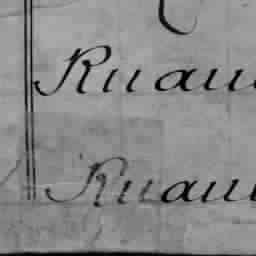 Ruau
Ruau